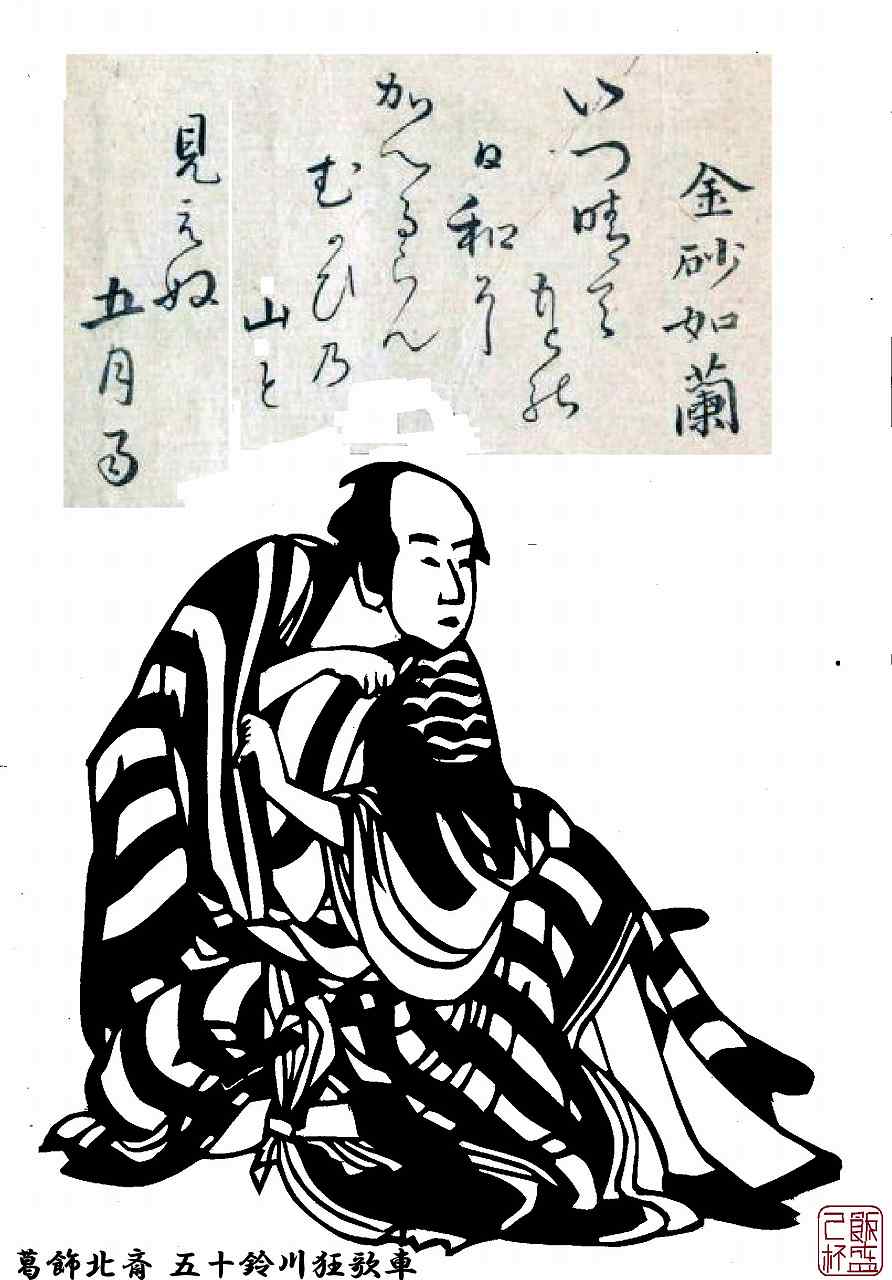 金砂如蘭
いつ晴て
もとの
日和に
かへるらん
むかひ乃
山と
見えぬ
五月雨
葛飾北斎 五十鈴川狂歌車
飯盛